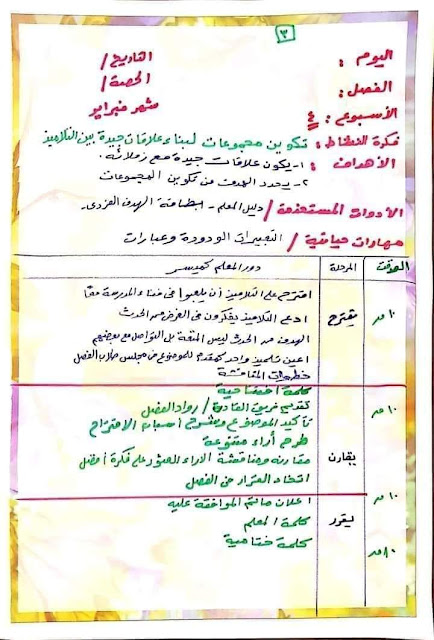 ٣
اليوم :
التاريخ /
الفصل :
الحصة /
الأسبوع : ٤
شهر فبراير
فكرة النشاط : تكوين مجموعات لبناء علاقات جيدة بين التلاميذ
الأهداف : ١- يكون علاقات جيدة مع زملائه .
٢- يحدد الهدف من تكوين المجموعات
الأدوات المستخدمة / دليل المعلم - بطاقة الهدف الفردى .
مهارات حياتية / التعبيرات الودودة وعبارات
الوقت المرحلة دور المعلم كميسر
اقترح على التلاميذ أن يلعبوا فى فناء المدرسة معًا
١٠ ق يقترح ادعى التلاميذ يفكرون فى الغرض من الحدث
الهدف من الحدث ليس المتعة بل التواصل مع بعضهم
اعين تلميذ واحد كمقدم للموضوع من مجلس طلاب الفصل
خطوات المناقشة
كلمة افتتاحية
١٠ ق تقديم فريق القادة / رواد الفصل
تأكيد الموضوع وشرح أسباب الاقتراح
طرح آراء متنوعة
يقارن مقارنه ومناقشة الآراء للعثور على فكرة أفضل
اتخاذ القرار من الفصل
١٠ ق اعلان ماتم الموافقة عليه
يقرر كلمة المعلم
١٠ ق كلمة ختامية